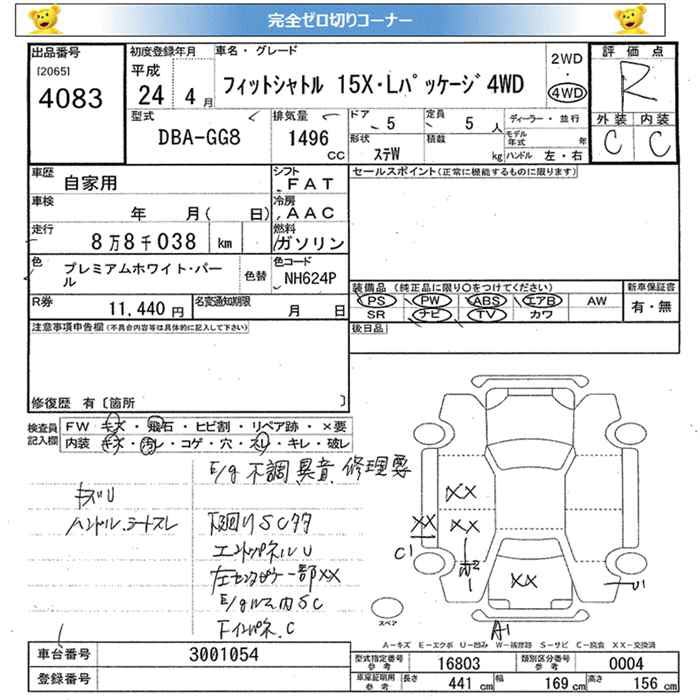 完全ゼロ切りコーナー
出品番号
[2065]
4083
初度登録年月
平成
24 4 月
車名・グレード
フィットシャトル 15X・Lパッケージ 4WD
2WD
・
4WD
評価点
R
外装 内装
C C
型式
DBA-GG8
排気量
1496
CC
ドア
5
定員
5 人
形状
ステW
積載
kg
ディーラー・並行
モデル年式 年
ハンドル 左・右
車歴
自家用
シフト
FAT
車検
年 月( 日)
冷房
AAC
走行
8万8千038 km
燃料
ガソリン
色
プレミアムホワイト・パール
色替
色コード
NH624P
R券
11,440 円
名変通知期限
月 日
セールスポイント(正常に機能するものに限ります)
装備品 (純正品に限り〇をつけてください)
PS PW ABS エアB AW
SR ナビ TV カワ
新車保証書
有・無
後日品
注意事項申告欄(不具合内容等は具体的に記入して下さい)
修復歴 有〔箇所 〕
検査員記入欄
FW キズ・飛石・ヒビ割・リペア跡・×要
内装 キズ・汚レ・コゲ・穴・スレ・キレ・破レ
E/g 不調 異音 修理要
キズU
ハンドル、シートスレ
下廻りSC多
エンドパネルU
左センタピラー一部XX
E/gルーム内SC
FインパネC
XX
XX
XX
C1
XX
U1
A1
スペア
A-キズ E-エクボ U-凹み W-補修跡 S-サビ C-腐食 XX-交換済
車台番号
3001054
登録番号
型式指定番号
参考
16803
類別区分番号
参考
0004
車庫証明用
参考
長さ 441 cm
幅 169 cm
高さ 156 cm